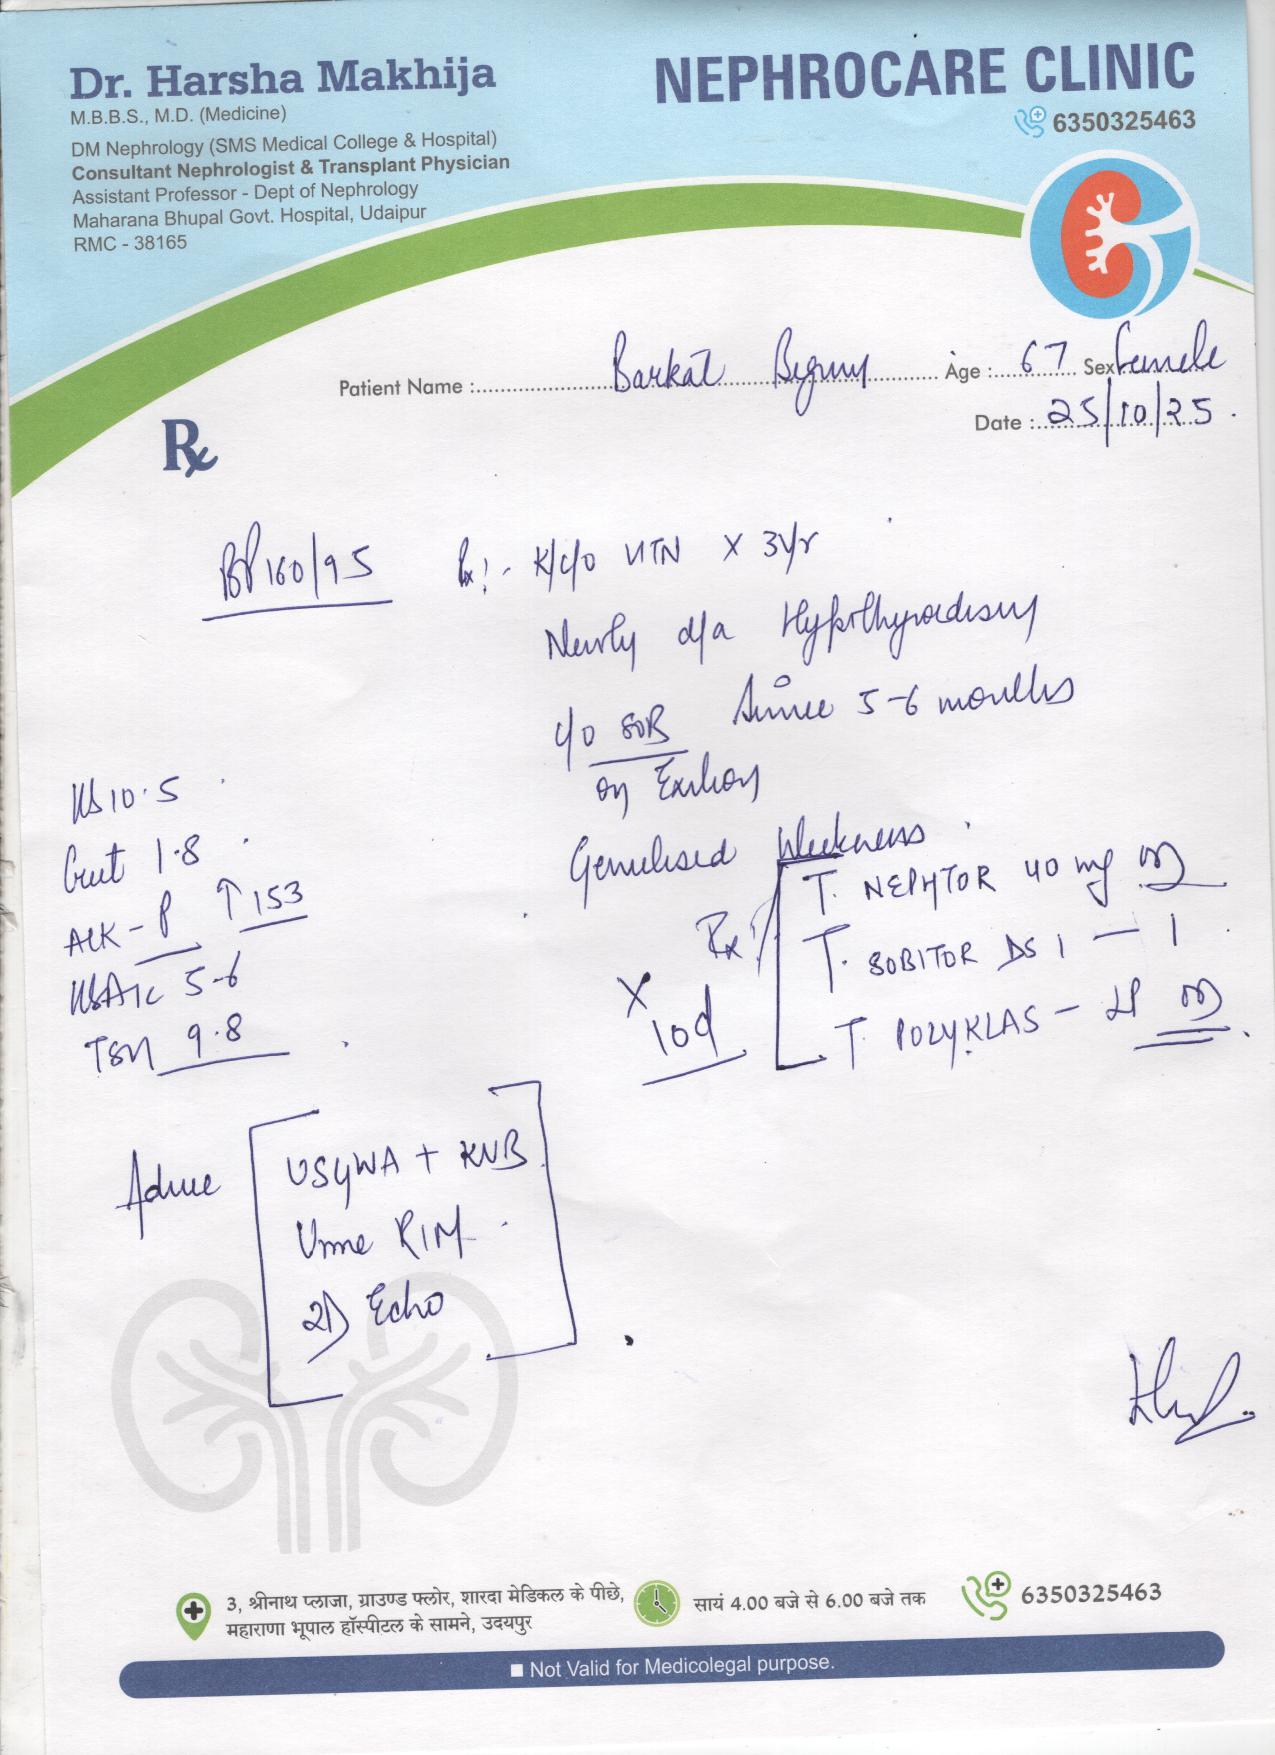 Dr. Harsha Makhija
M.B.B.S., M.D. (Medicine)
DM Nephrology (SMS Medical College & Hospital)
Consultant Nephrologist & Transplant Physician
Assistant Professor - Dept of Nephrology
Maharana Bhupal Govt. Hospital, Udaipur
RMC - 38165
NEPHROCARE CLINIC
6350325463
Patient Name : Barkat Begum Age : 67 Sex Female
Date : 25/10/25
Rx
BP 160/95
K/c/o HTN X 3yr
Newly d/a Hypothyroidism
c/o SOB Since 5-6 months
on Exertion
Generalised Weakness
Hb 10.5
Creat 1.8
ALK-P ↑153
HbA1c 5.6
TSH 9.8
Rx
T. NEPHTOR 40 mg OD
T. SOBITOR DS 1 — 1
T. POLYKLAS - OD
X 10d
Advice
USG WA + KUB
Urine R/M
2D Echo
3, श्रीनाथ प्लाजा, ग्राउण्ड फ्लोर, शारदा मेडिकल के पीछे,
महाराणा भूपाल हॉस्पीटल के सामने, उदयपुर
सायं 4.00 बजे से 6.00 बजे तक
6350325463
Not Valid for Medicolegal purpose.